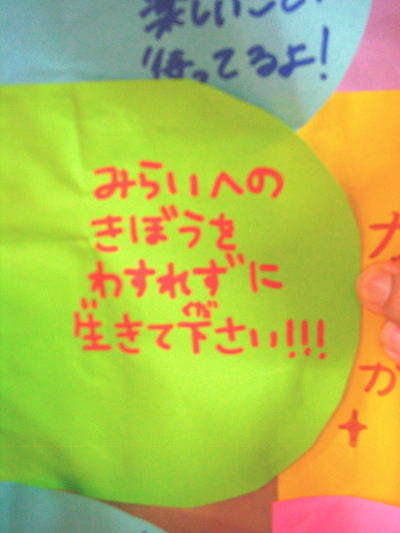 楽しいこと
待ってるよ!
みらいへの
きぼうを
わすれずに
生きて下さい!!!
カ
か